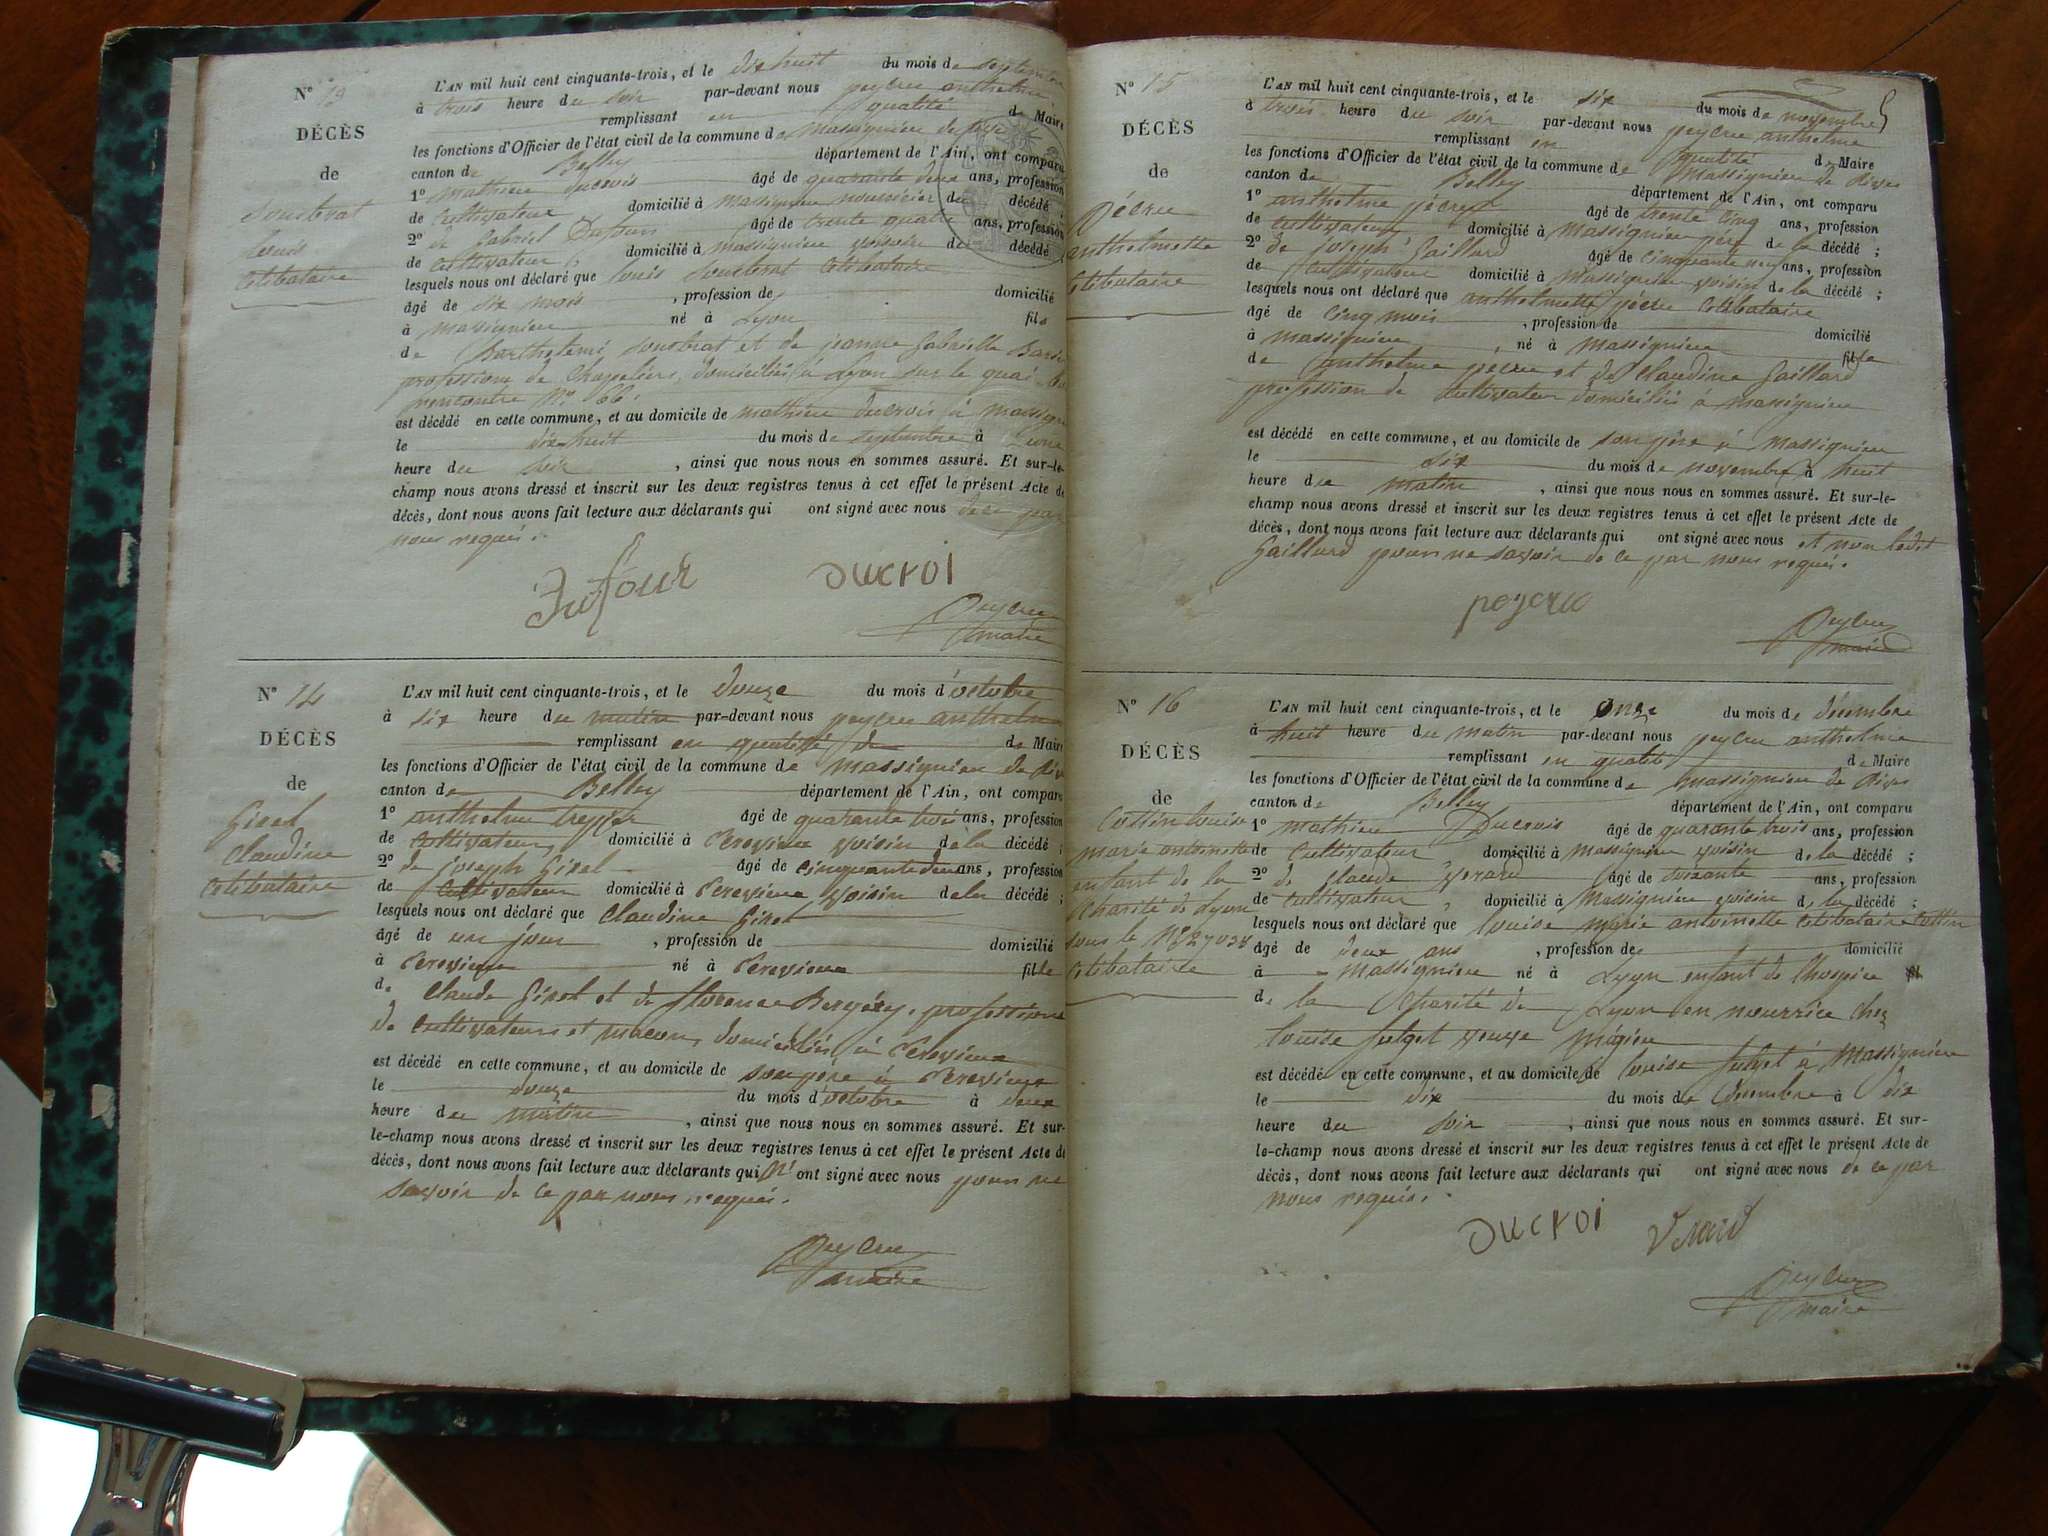 N° 13
DÉCÈS
de
Louis
Célibataire
L'AN mil huit cent cinquante-trois, et le dix huit du mois de septembre
à trois heure du soir par-devant nous peycru anthelme
remplissant en qualité de Maire
les fonctions d'Officier de l'état civil de la commune de Massignieu de rives
canton de Belley département de l'Ain, ont comparu
1° mathieu Ducrois âgé de quarante deux ans, profession
de Cultivateur domicilié à Massignieu nourricier du décédé ;
2° de Gabriel Dufour âgé de trente quatre ans, profession
de Cultivateur, domicilié à massignieu voisin du décédé
lesquels nous ont déclaré que louis Célibataire
âgé de six mois , profession de domicilié
à massignieu né à Lyon fils
de Barthelemi et de jeanne Gabrielle
profession de Chapeliers, domiciliés à Lyon sur le quai
rencontre N° 66.
est décédé en cette commune, et au domicile de mathieu Ducrois à Massignieu
le dix huit du mois de septembre à une
heure du soir , ainsi que nous nous en sommes assuré. Et sur-le-
champ nous avons dressé et inscrit sur les deux registres tenus à cet effet le présent Acte de
décès, dont nous avons fait lecture aux déclarants qui ont signé avec nous de ce par
nous requis.
Dufour ducroi
Peycru
maire
N° 14
DÉCÈS
de
Girel
Claudine
Célibataire
L'AN mil huit cent cinquante-trois, et le douze du mois d'octobre
à six heure du matin par-devant nous peycru anthelme
remplissant en qualité de de Maire
les fonctions d'Officier de l'état civil de la commune de Massignieu de Rives
canton de Belley département de l'Ain, ont comparu
1° anthelme âgé de quarante trois ans, profession
de Cultivateur, domicilié à voisin de la décédé ;
2° de joseph Girel âgé de cinquante deux ans, profession
de Cultivateur domicilié à voisin de la décédé ;
lesquels nous ont déclaré que Claudine Girel
âgé de un jour , profession de domicilié
à né à fille
de Claude Girel et de florence profession
de Cultivateurs et macon, domiciliés à
est décédé en cette commune, et au domicile de son père à
le douze du mois d'octobre à deux
heure du matin , ainsi que nous nous en sommes assuré. Et sur-
le-champ nous avons dressé et inscrit sur les deux registres tenus à cet effet le présent Acte de
décès, dont nous avons fait lecture aux déclarants qui N' ont signé avec nous pour ne
savoir de ce par nous requis.
Peycru
maire
N° 15
DÉCÈS
de
Pécru
anthelmette
Célibataire
5
L'AN mil huit cent cinquante-trois, et le six du mois de novembre
à trois heure du soir par-devant nous peycru anthelme
remplissant en qualité de Maire
les fonctions d'Officier de l'état civil de la commune de Massignieu de Rives
canton de Belley département de l'Ain, ont comparu
1° anthelme pécru âgé de trente cinq ans, profession
de Cultivateur domicilié à Massignieu père de la décédé ;
2° de joseph Gaillard âgé de cinquante neuf ans, profession
de Cultivateur domicilié à Massignieu voisin de la décédé ;
lesquels nous ont déclaré que anthelmette pécru Célibataire
âgé de Cinq mois , profession de domicilié
à massignieu , né à Massignieu fille
de anthelme pecru et de Claudine Gaillard
profession de Cultivateur domiciliés à Massignieu
est décédé en cette commune, et au domicile de son père à Massignieu
le six du mois de novembre à huit
heure du matin , ainsi que nous nous en sommes assuré. Et sur-le-
champ nous avons dressé et inscrit sur les deux registres tenus à cet effet le présent Acte de
décès, dont nous avons fait lecture aux déclarants qui ont signé avec nous et non ledit
Gaillard pour ne savoir de ce par nous requis.
peycru
Peycru
maire
N° 16
DÉCÈS
de
Cottin louise
marie antoinette
enfant de la
Charité de Lyon
sous le N°
Célibataire
L'AN mil huit cent cinquante-trois, et le onze du mois de décembre
à huit heure du matin par-devant nous peycru anthelme
remplissant en qualité de Maire
les fonctions d'Officier de l'état civil de la commune de Massignieu de Rives
canton de Belley département de l'Ain, ont comparu
1° mathieu Ducrois âgé de quarante trois ans, profession
de Cultivateur domicilié à Massignieu voisin de la décédé ;
2° de Claude Verard âgé de soixante ans, profession
de Cultivateur, domicilié à Massignieu voisin de la décédé ;
lesquels nous ont déclaré que louise marie antoinette Célibataire Cottin
âgé de deux ans , profession de domicilié
à Massignieu né à Lyon enfant de l'hospice
de la Charité de Lyon en nourrice chez
louise veuve
est décédé en cette commune, et au domicile de louise à Massignieu
le dix du mois de décembre à dix
heure du soir , ainsi que nous nous en sommes assuré. Et sur-
le-champ nous avons dressé et inscrit sur les deux registres tenus à cet effet le présent Acte de
décès, dont nous avons fait lecture aux déclarants qui ont signé avec nous de ce par
nous requis.
ducroi Verard
Peycru
maire